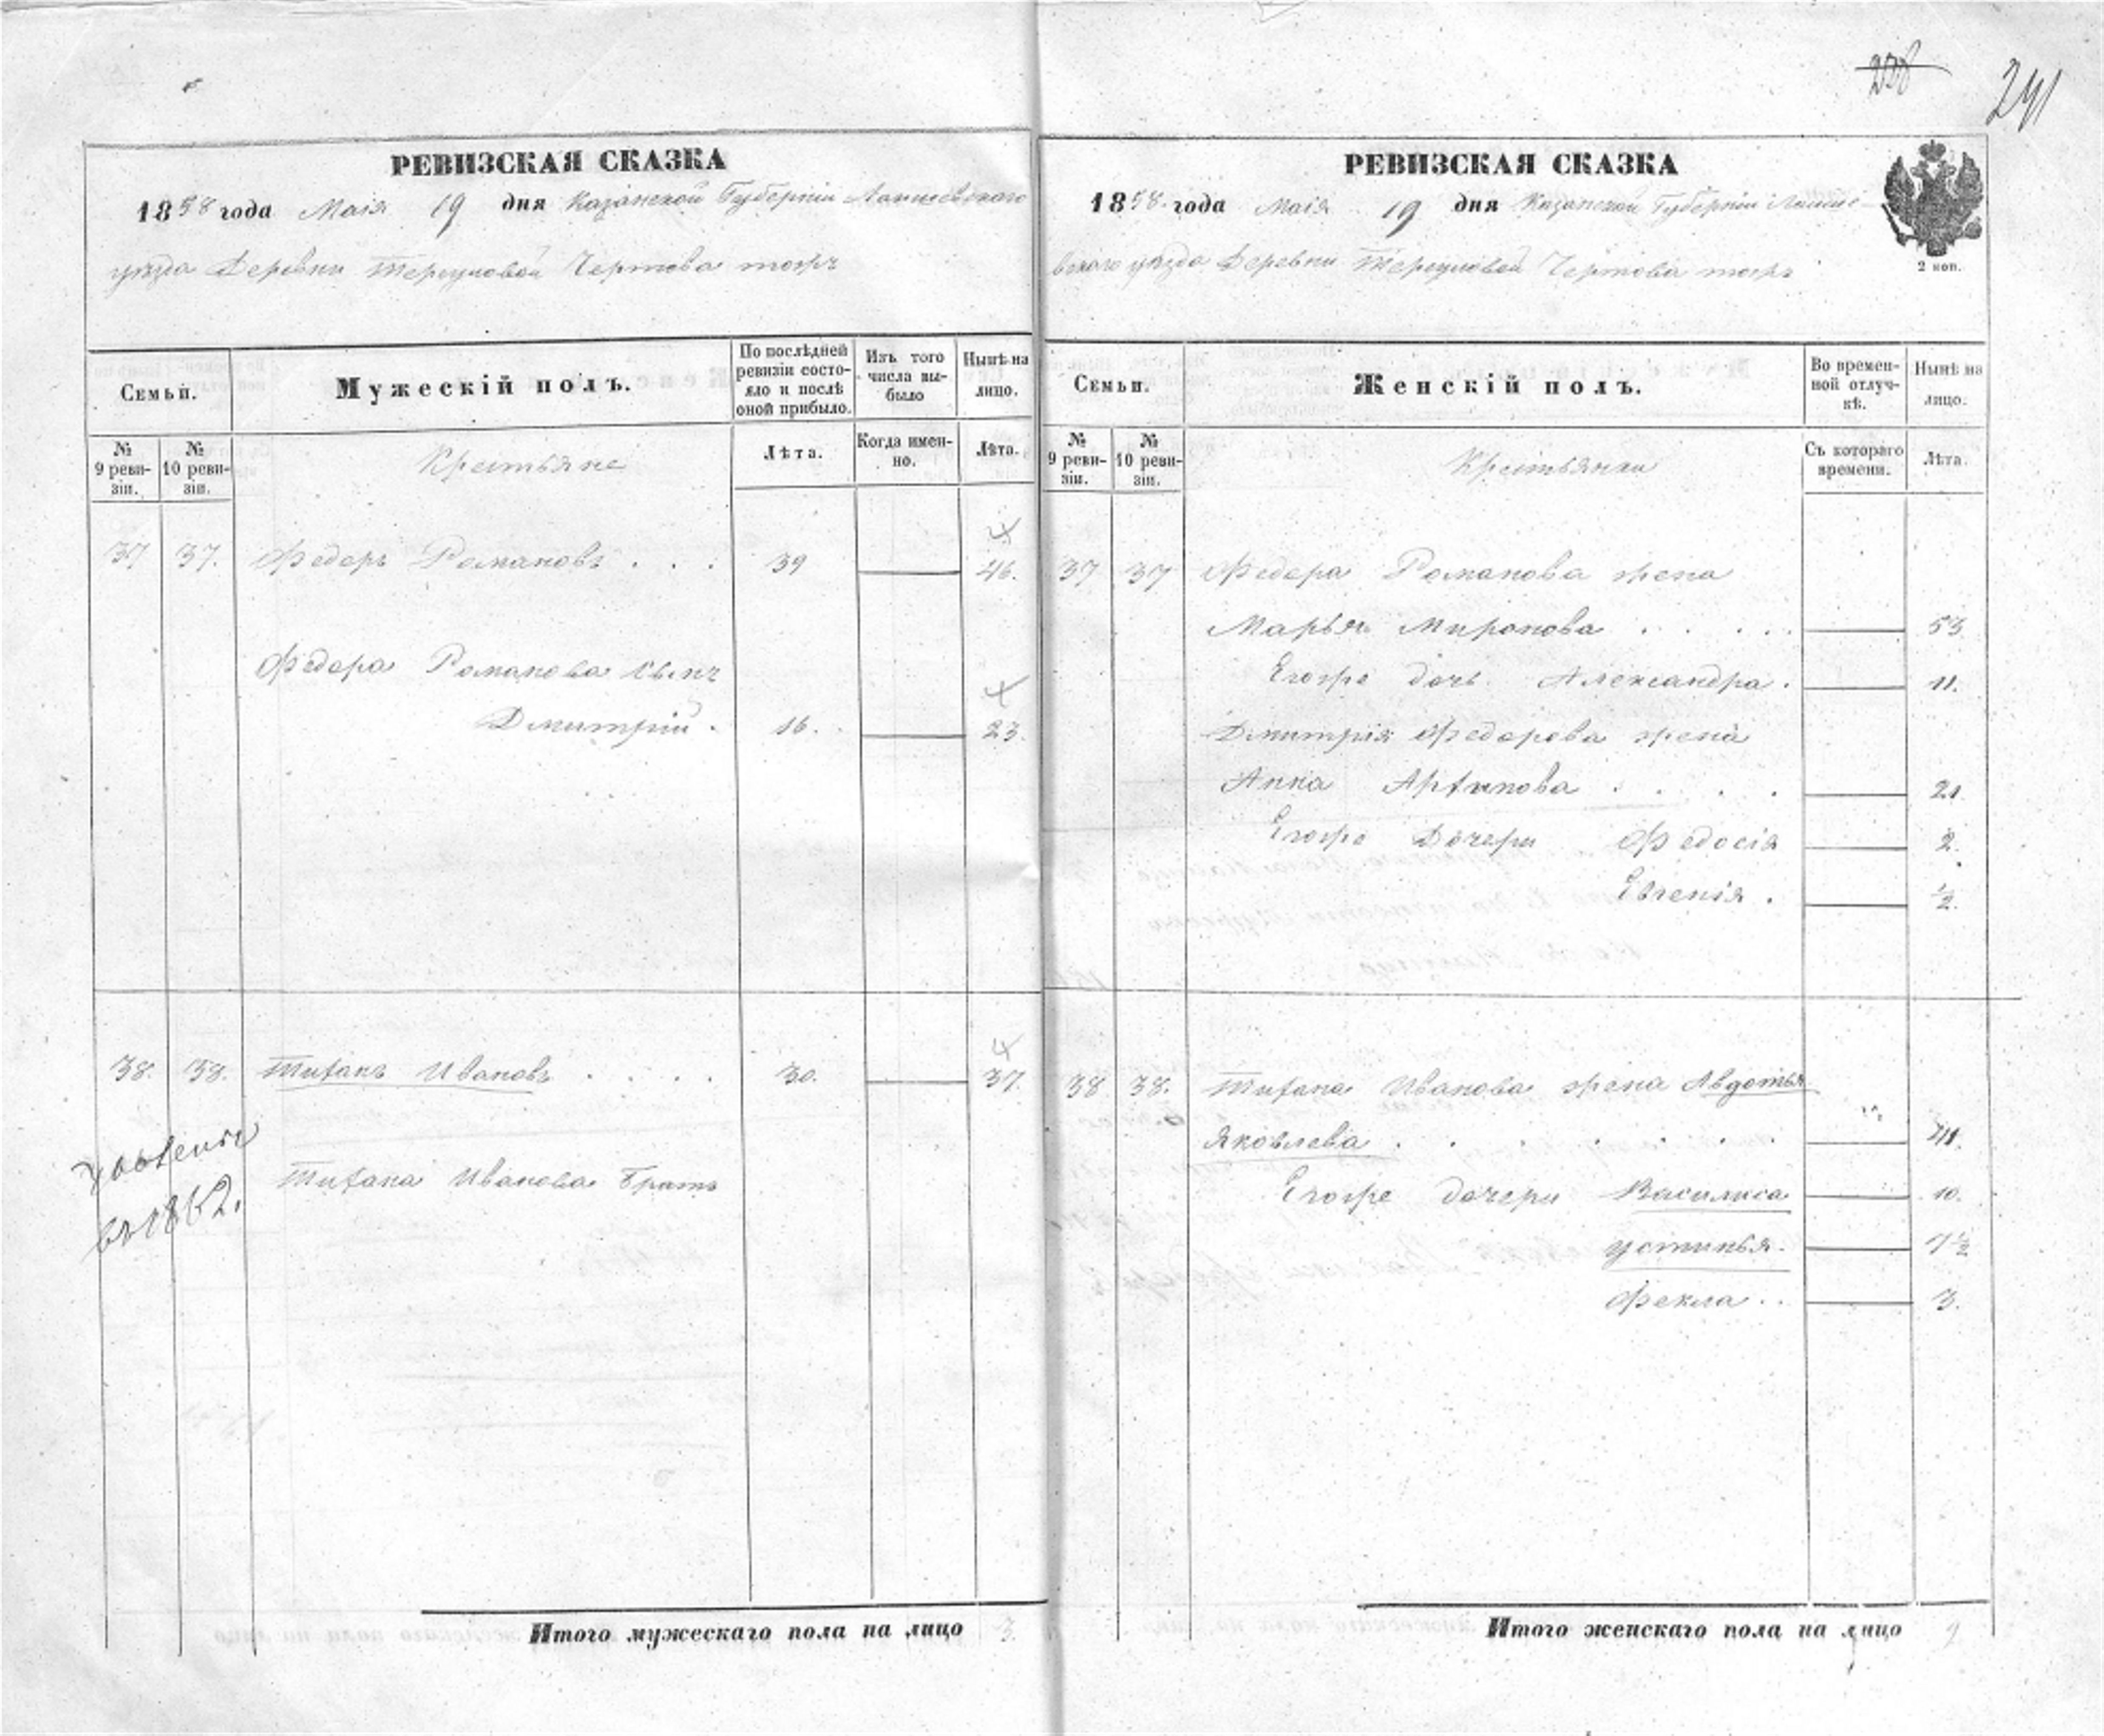 238
241
РЕВИЗСКАЯ СКАЗКА
1858 года Маія 19 дня Казанской Губерніи Лаишевскаго
уѣзда Деревни Чертова тожъ
Семьи.
Мужескій полъ.
По послѣдней ревизіи состояло и послѣ оной прибыло.
Изъ того числа выбыло
Нынѣ на лицо.
№ 9 ревизіи.
№ 10 ревизіи.
Крестьяне
Лѣта.
Когда именно.
Лѣта.
37 37. Федоръ Романовъ . . . 39 46.
Федора Романова сынъ
Дмитрій . 16. 23.
38. 38. Иванов . . . . 30. 37.
въ 1862.
Иванова братъ
Итого мужескаго пола на лицо 3.
РЕВИЗСКАЯ СКАЗКА
1858. года Маія 19 дня Казанской Губерніи Лаише
вскаго уѣзда Деревни Чертова тожъ
2 коп.
Семьи.
Женскій полъ.
Во временной отлучкѣ.
Нынѣ на лицо.
№ 9 ревизіи.
№ 10 ревизіи.
Крестьянки
Съ котораго времени.
Лѣта.
37 37 Федора Романова жена
Марья Миронова . . . . 53
Егоже дочь Александра . 11.
Дмитрія Федорова жена
Анна . . . . 21.
Егоже Дочери Федосія 2.
Евгенія . ½.
38 38. Иванова жена Авдотья
Яковлева . . . . . . 41.
Егоже дочери Василиса 10.
Устинья. 7½
Фекла . . 3.
Итого женскаго пола на лицо 9